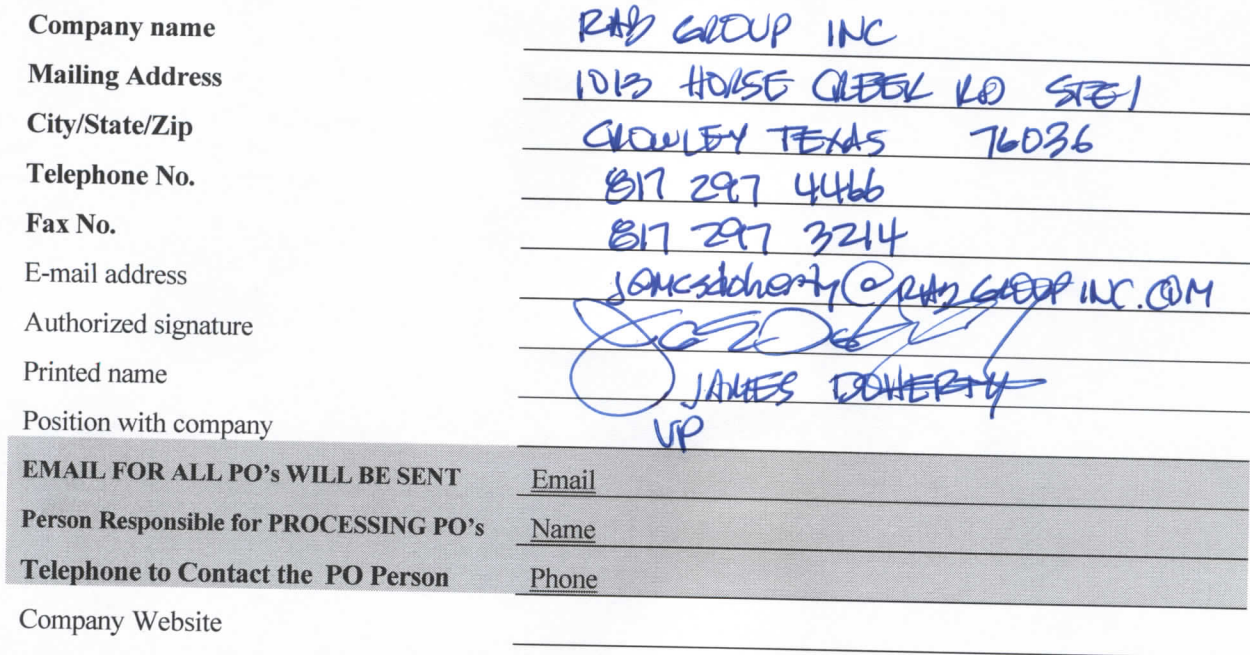 Company name RAB GROUP INC
Mailing Address 1013 HORSE CREEK RD STE 1
City/State/Zip CROWLEY TEXAS 76036
Telephone No. 817 297 4466
Fax No. 817 297 3214
E-mail address jamesdoherty@RABGROUPINC.COM
Authorized signature
Printed name JAMES DOHERTY
Position with company VP
EMAIL FOR ALL PO's WILL BE SENT Email
Person Responsible for PROCESSING PO's Name
Telephone to Contact the PO Person Phone
Company Website